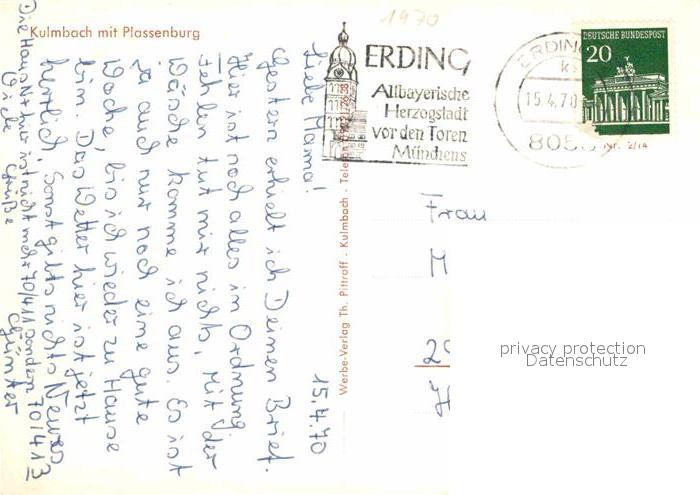 1970
Kulmbach mit Plassenburg
15.4.70
Liebe Mama!
Gestern erhielt ich Deinen Brief.
Hier ist noch alles in Ordnung.
Fehlen tut mir nichts, mit der
Wäsche komme ich aus. Es ist
ja auch nur noch eine gute
Woche, bis ich wieder zu Hause
bin. Das Wetter hier ist jetzt
herrlich. Sonst gibts nichts Neues
Viele Grüße Günter
Die Haus Nr hier ist nicht mehr 70/411 sondern 70/413
Werbe-Verlag Th. Pittroff - Kulmbach - Telefon
ERDING
Altbayerische
Herzogstadt
vor den Toren
Münchens
ERDING
15.4.70
805
DEUTSCHE BUNDESPOST
20
Nr. 2/14
Frau
M
2
H
privacy protection
Datenschutz